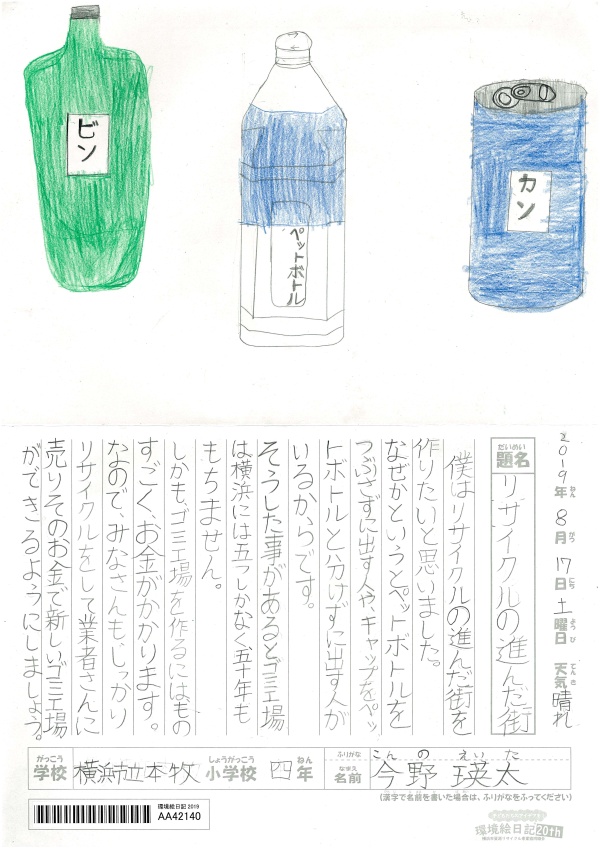 ビン
ペットボトル
カン
2019年 8月 17日 土曜日 天気 晴れ
ねん がつ にち ようび てんき
だいめい
題名 リサイクルの進んだ街
僕はリサイクルの進んだ街を
作りたいと思いました。
なぜかというとペットボトルを
つぶさずに出す人や、キャップをペッ
トボトルと分けずに出す人が
いるからです。
そうした事があるとゴミ工場
は横浜には五つしかなく五十年も
もちません。
しかも、ゴミ工場を作るにはもの
すごく、お金がかかります。
なので、みなさんもしっかり
リサイクルをして業者さんに
売りそのお金で新しいゴミ工場
ができるようにしましょう。
がっこう しょうがっこう ねん
学校 横浜市立本牧 小学校 四年
ふりがな こんの えいた
なまえ
名前 今野 瑛太
(漢字で名前を書いた場合は、ふりがなをふってください)
環境絵日記 2019
AA42140
環境絵日記 20th